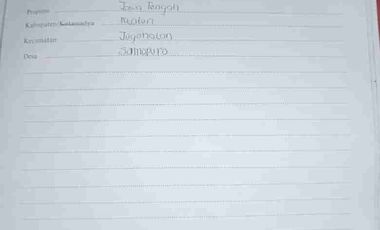 Propinsi Jawa Tengah
Kabupaten/Kotamadya Klaten
Kecamatan Jogonalan
Desa Somopuro